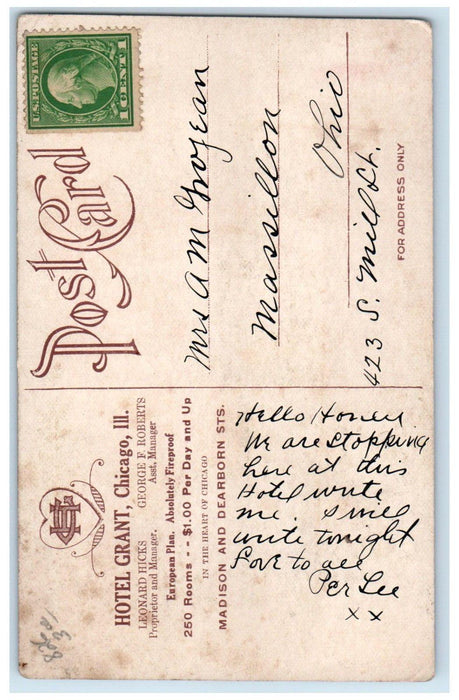 U.S. POSTAGE
1 CENT 1
Post Card
HOTEL GRANT, Chicago, Ill.
LEONARD HICKS
Proprietor and Manager.
GEORGE F. ROBERTS
Asst. Manager
European Plan. Absolutely Fireproof
250 Rooms - - $1.00 Per Day and Up
IN THE HEART OF CHICAGO
MADISON AND DEARBORN STS.
Hello Honey
We are stopping
here at this
Hotel write
me. I will
write tonight
Love to all
Per Lee
x x
Mrs A M Grojean
Massillon
Ohio
423 S. Mill St.
FOR ADDRESS ONLY